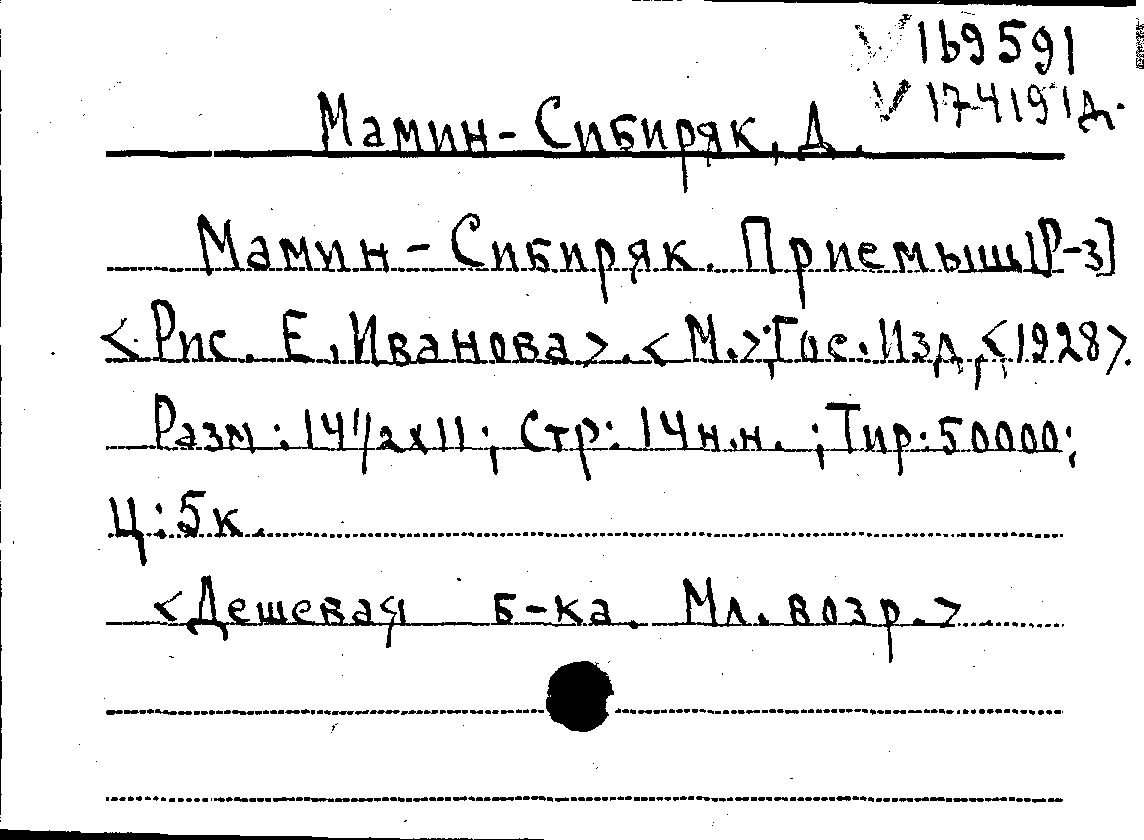 V 169591
V 174191д.
Мамин-Сибиряк, Д.
Мамин-Сибиряк. Приемыш [Р-з]
<Рис. Е. Иванова>. <М.>; Гос. Изд, <1928>.
Разм: 14 1/2 x 11; Стр: 14 н.н.; Тир: 50000;
Ц: 5 к.
<Дешевая б-ка. Мл. возр.>